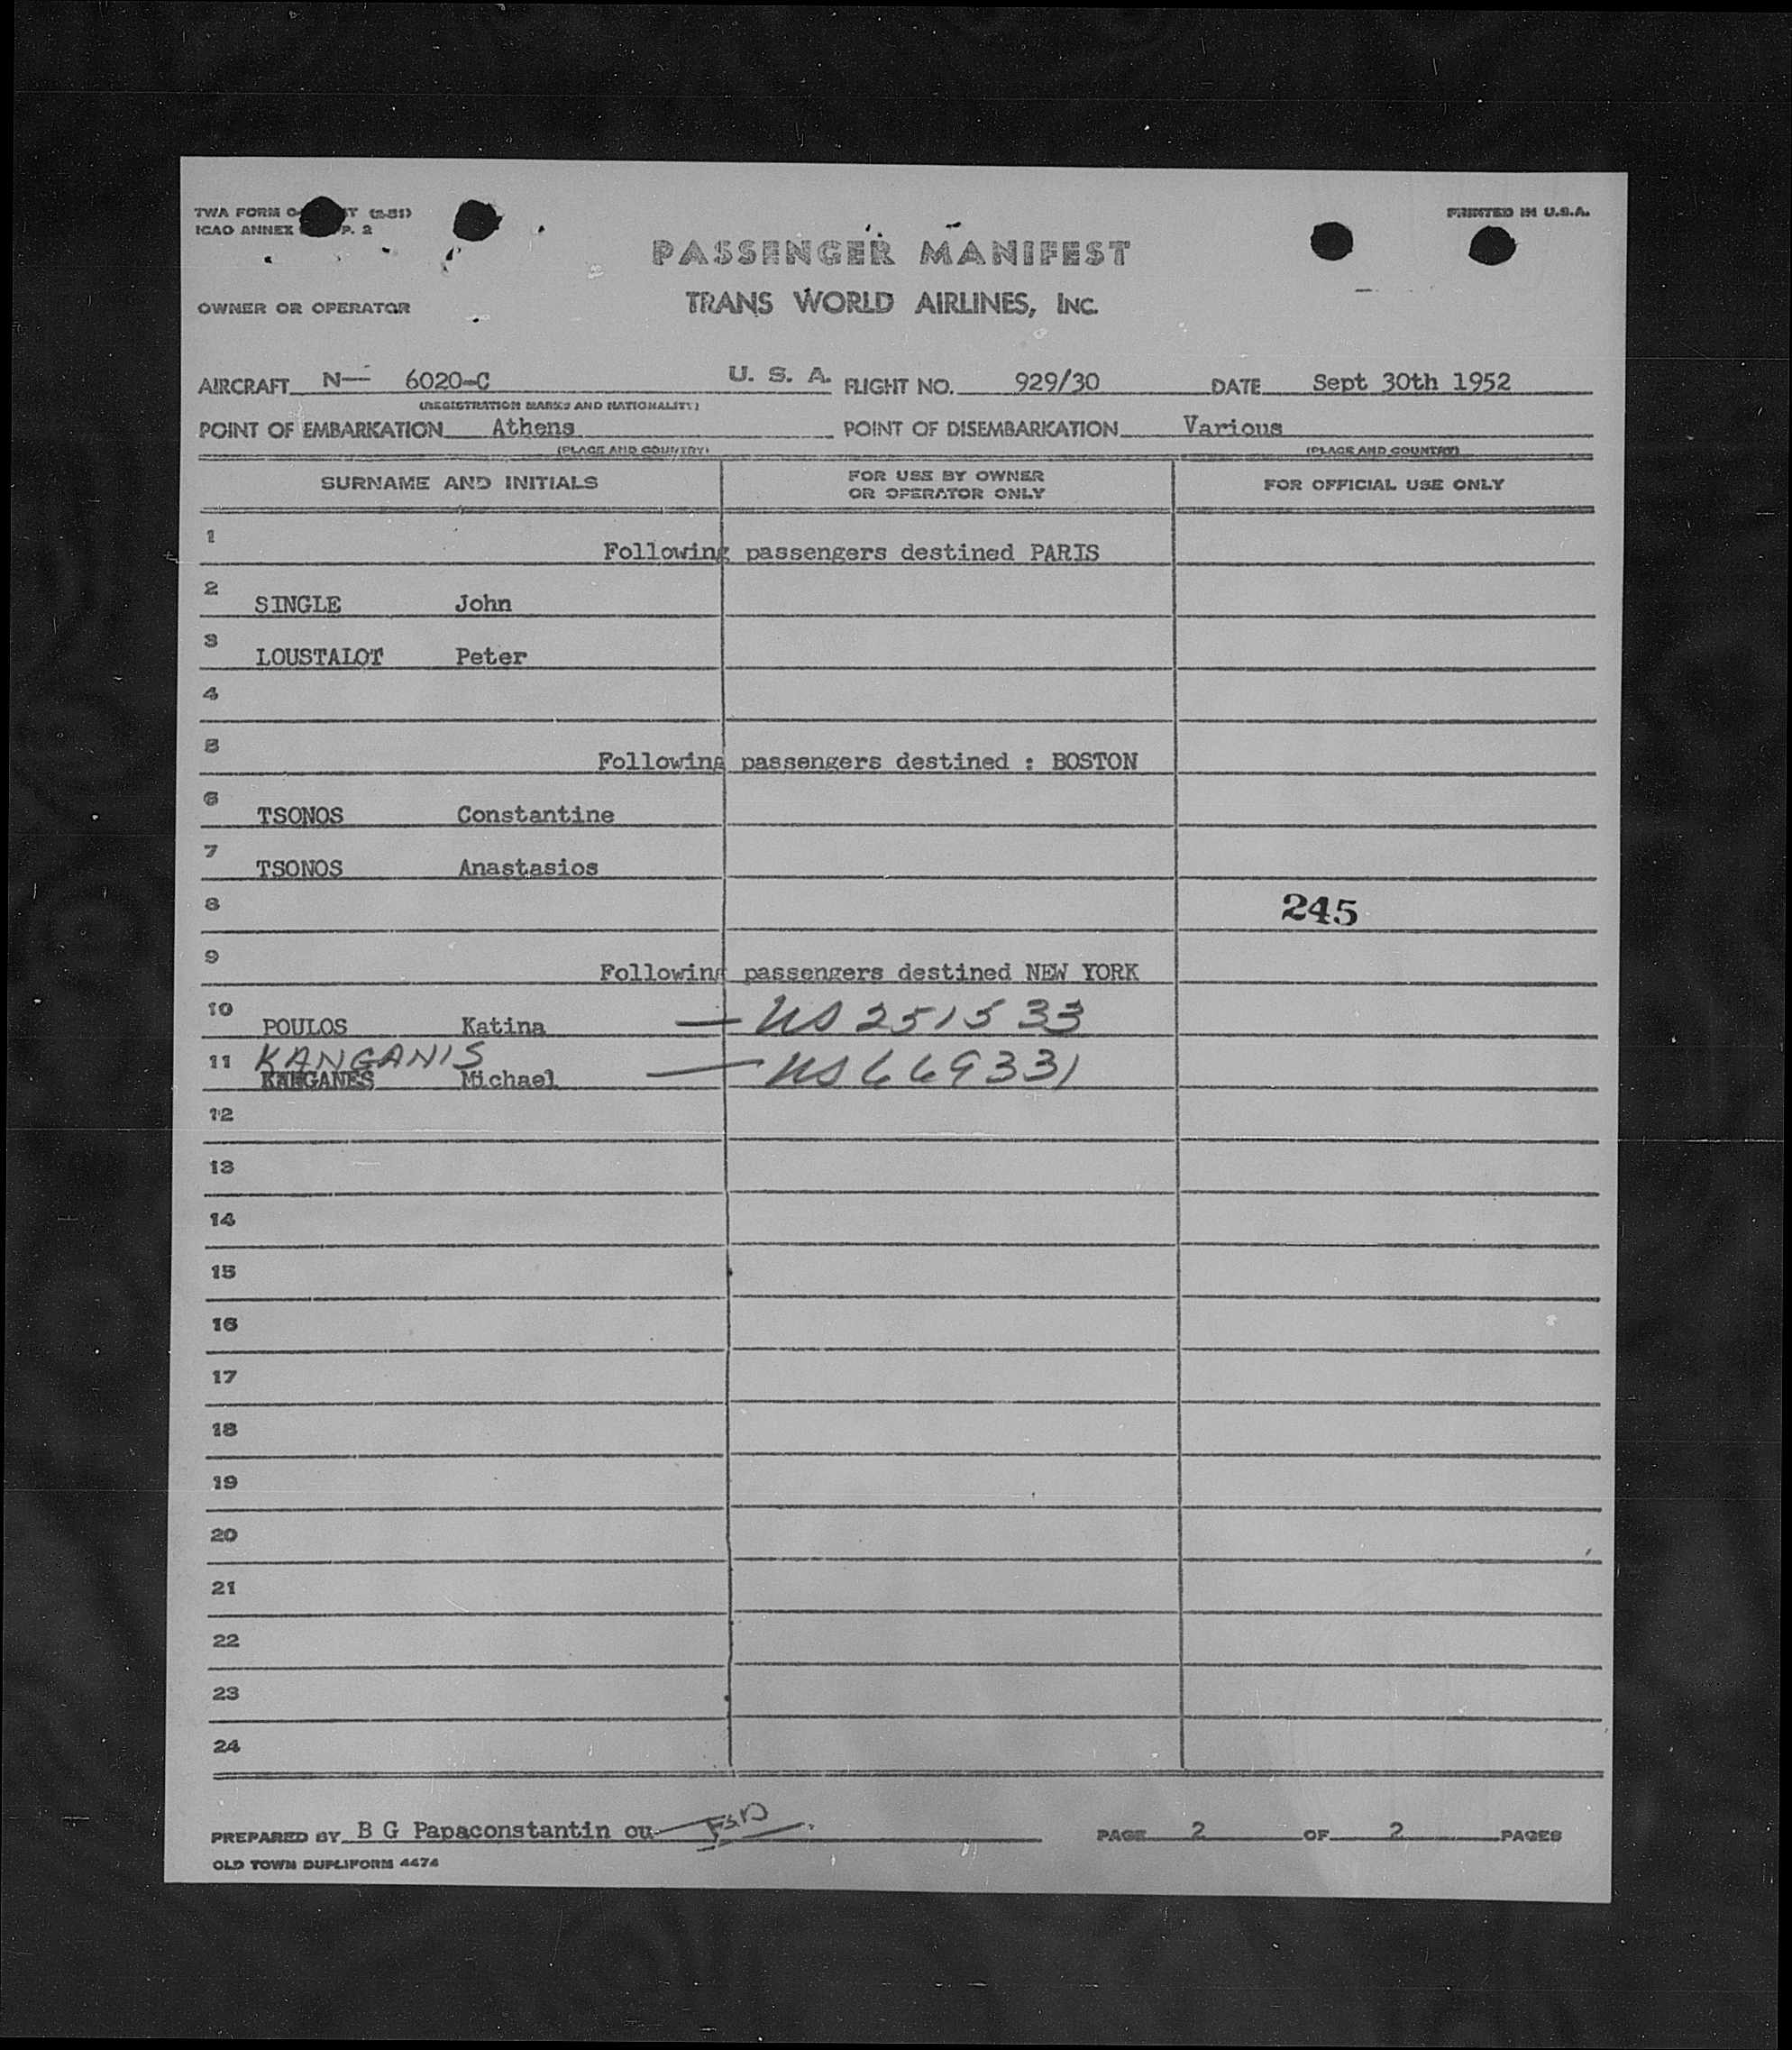 TWA FORM (2-51)
ICAO ANNEX P. 2
PRINTED IN U.S.A.
PASSENGER MANIFEST
OWNER OR OPERATOR TRANS WORLD AIRLINES, INC.
AIRCRAFT N— 6020-C U. S. A. FLIGHT NO. 929/30 DATE Sept 30th 1952
(REGISTRATION MARKS AND NATIONALITY)
POINT OF EMBARKATION Athens POINT OF DISEMBARKATION Various
(PLACE AND COUNTRY) (PLACE AND COUNTRY)
SURNAME AND INITIALS FOR USE BY OWNER OR OPERATOR ONLY FOR OFFICIAL USE ONLY
1 Following passengers destined PARIS
2 SINGLE John
3 LOUSTALOT Peter
4
5 Following passengers destined : BOSTON
6 TSONOS Constantine
7 TSONOS Anastasios
8 245
9 Following passengers destined NEW YORK
10 POULOS Katina — US 251533
11 KANGANIS
KANGANES Michael — US 669331
12
13
14
15
16
17
18
19
20
21
22
23
24
PREPARED BY B G Papaconstantin ou PAGE 2 OF 2 PAGES
OLD TOWN DUPLIFORM 4474